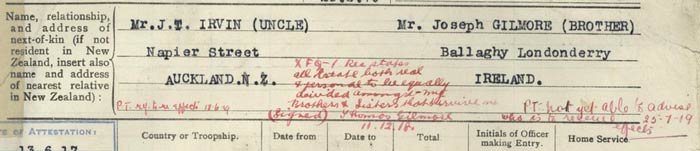 Name, relationship,
and address of
next-of-kin (if not
resident in New
Zealand, insert also
name and address
of nearest relative
in New Zealand) :
Mr.J.T. IRVIN (UNCLE) Mr. Joseph GILMORE (BROTHER)
Napier Street Ballaghy Londonderry
AUCKLAND.N.Z. IRELAND.
all Estate both real
& personal to be equally
divided among
Brothers & Sisters that survive me
(Signed) Thomas Gilmore
11.12.18.
P.T. not yet able to advise
who is to receive 25-7-19
effects
OF ATTESTATION:
13.6.17
Country or Troopship. Date from Date to Total Initials of Officer making Entry. Home Service